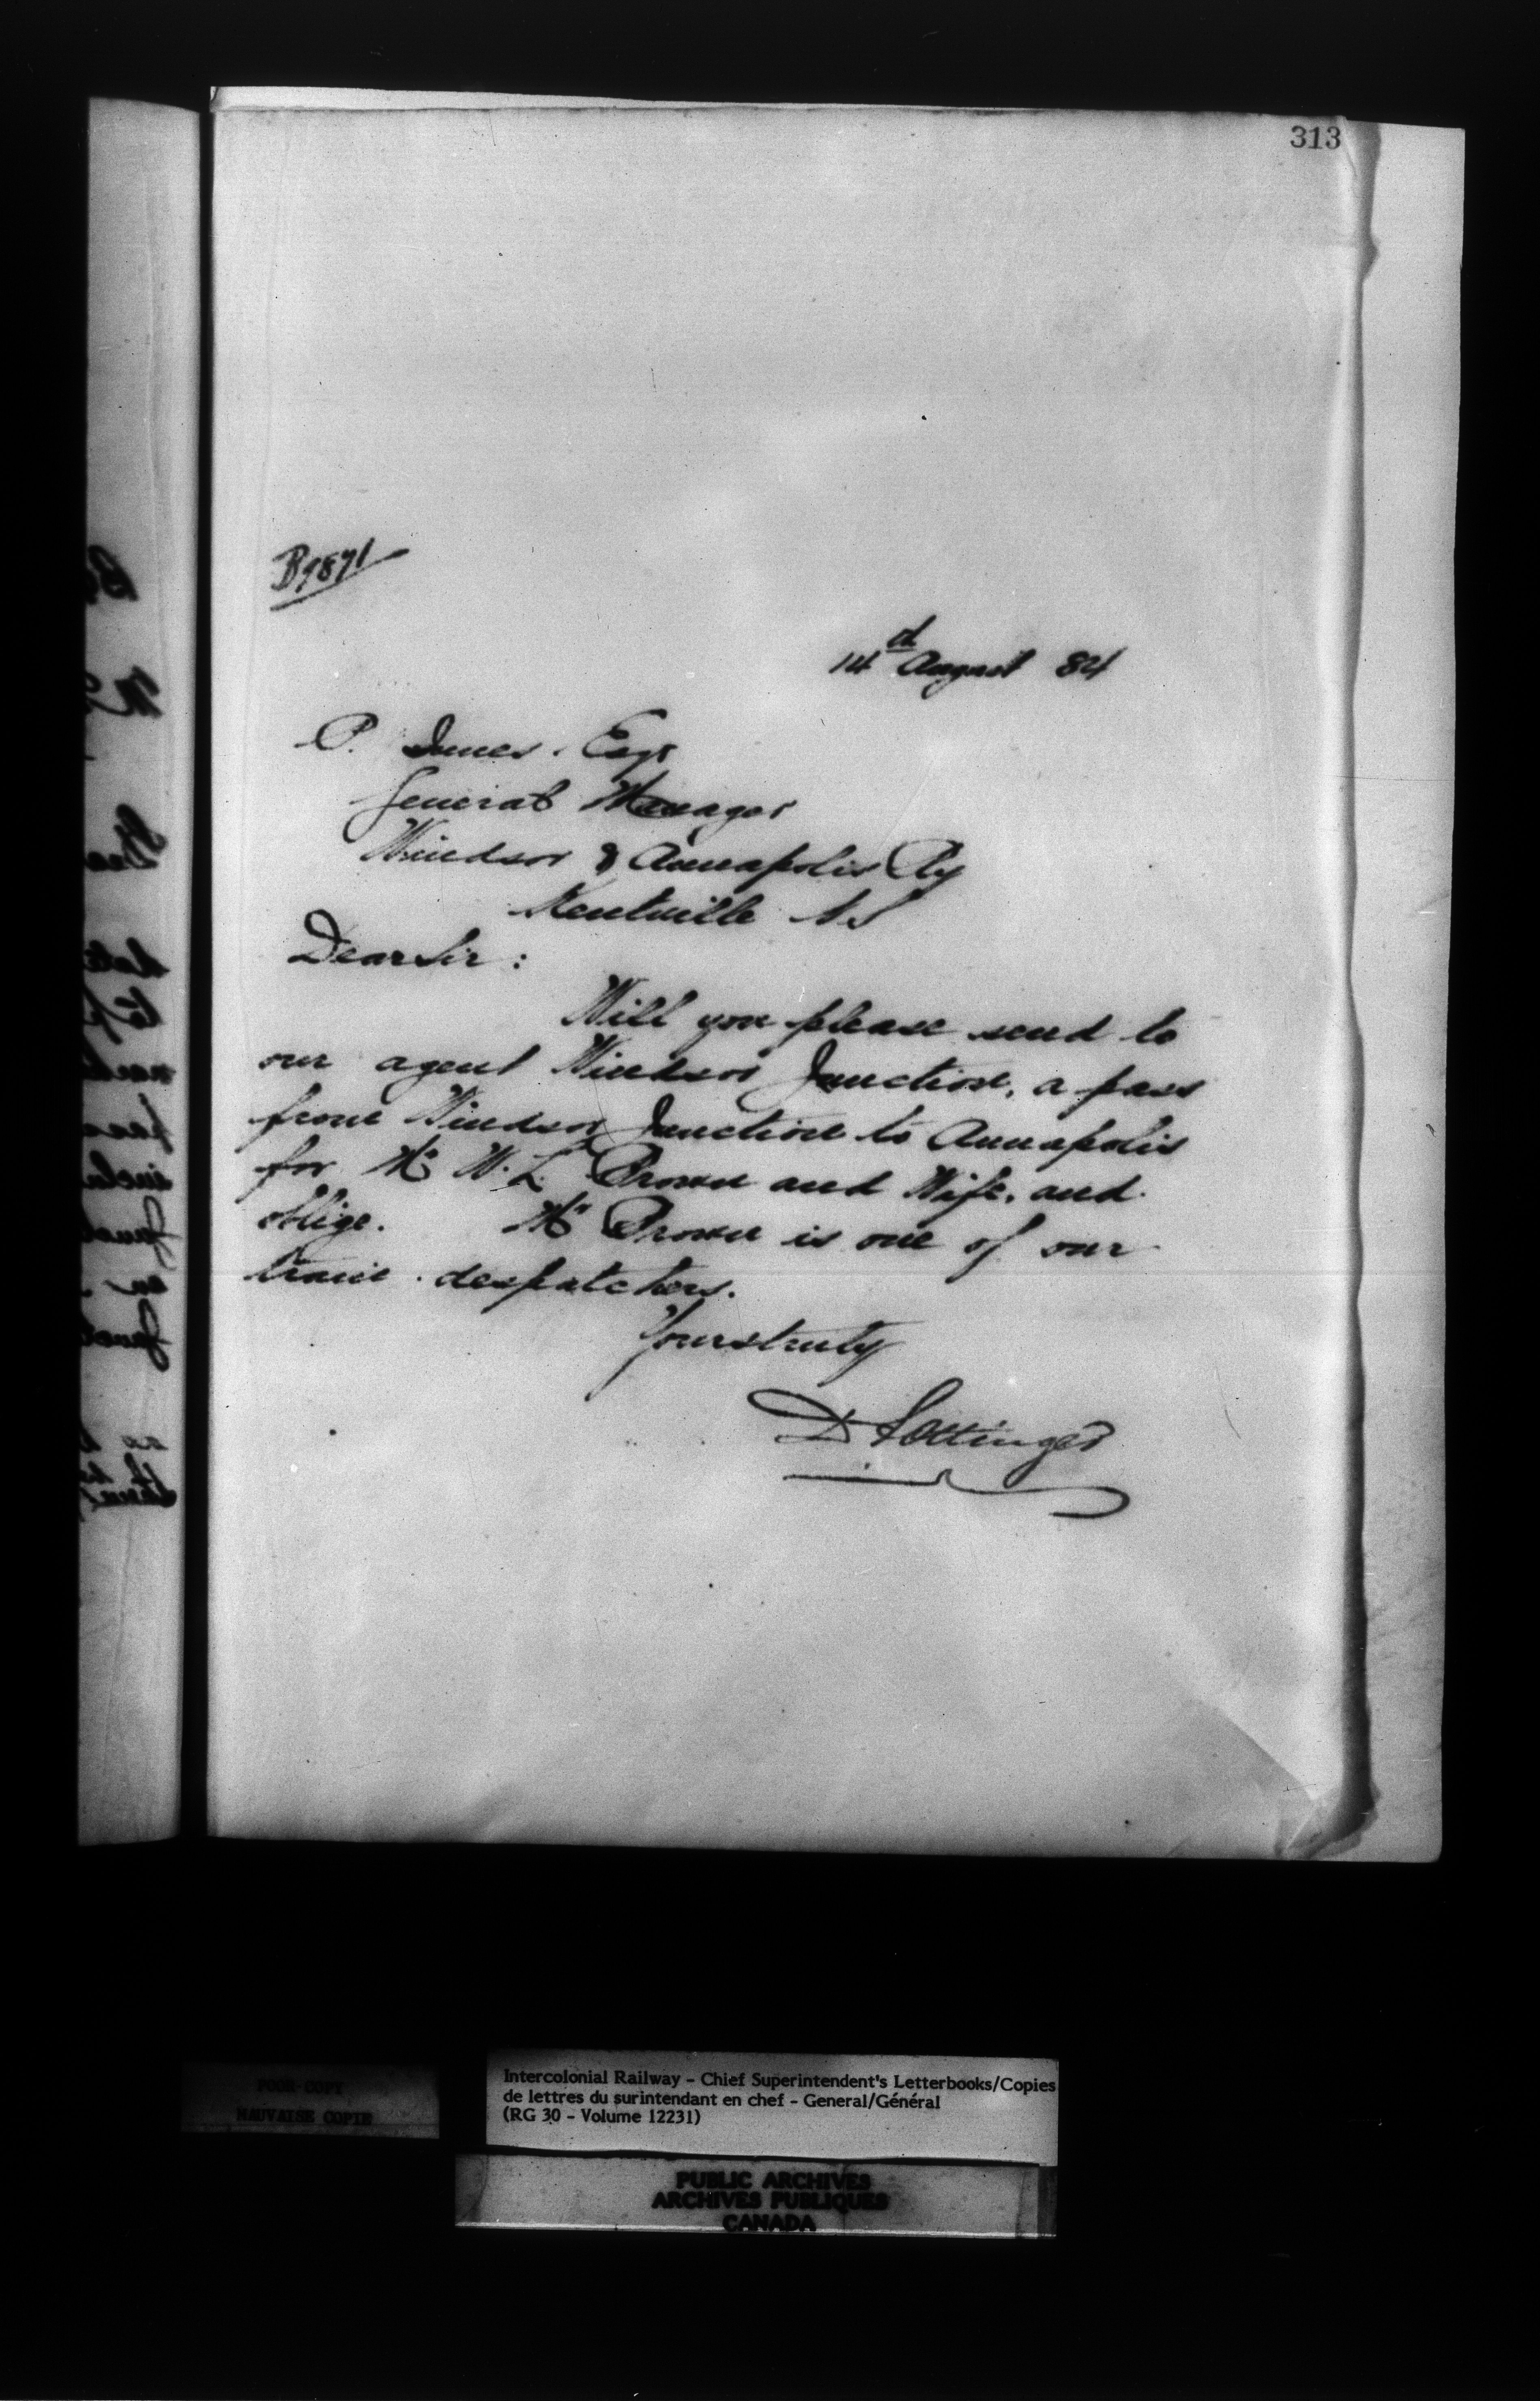 313
B9871
14th August 84
P. Innes. Esqr
General Manager
Windsor & Annapolis Ry
Kentville N.S
Dear Sir:
Will you please send to
our agent Windsor Junction, a pass
from Windsor Junction to Annapolis
for Mr W. L. Brown and Wife, and
oblige. Mr Brown is one of our
train despatchers.
Yours truly
D Pottinger
POOR COPY
MAUVAISE COPIE
Intercolonial Railway - Chief Superintendent's Letterbooks/Copies
de lettres du surintendant en chef - General/Général
(RG 30 - Volume 12231)
PUBLIC ARCHIVES
ARCHIVES PUBLIQUES
CANADA